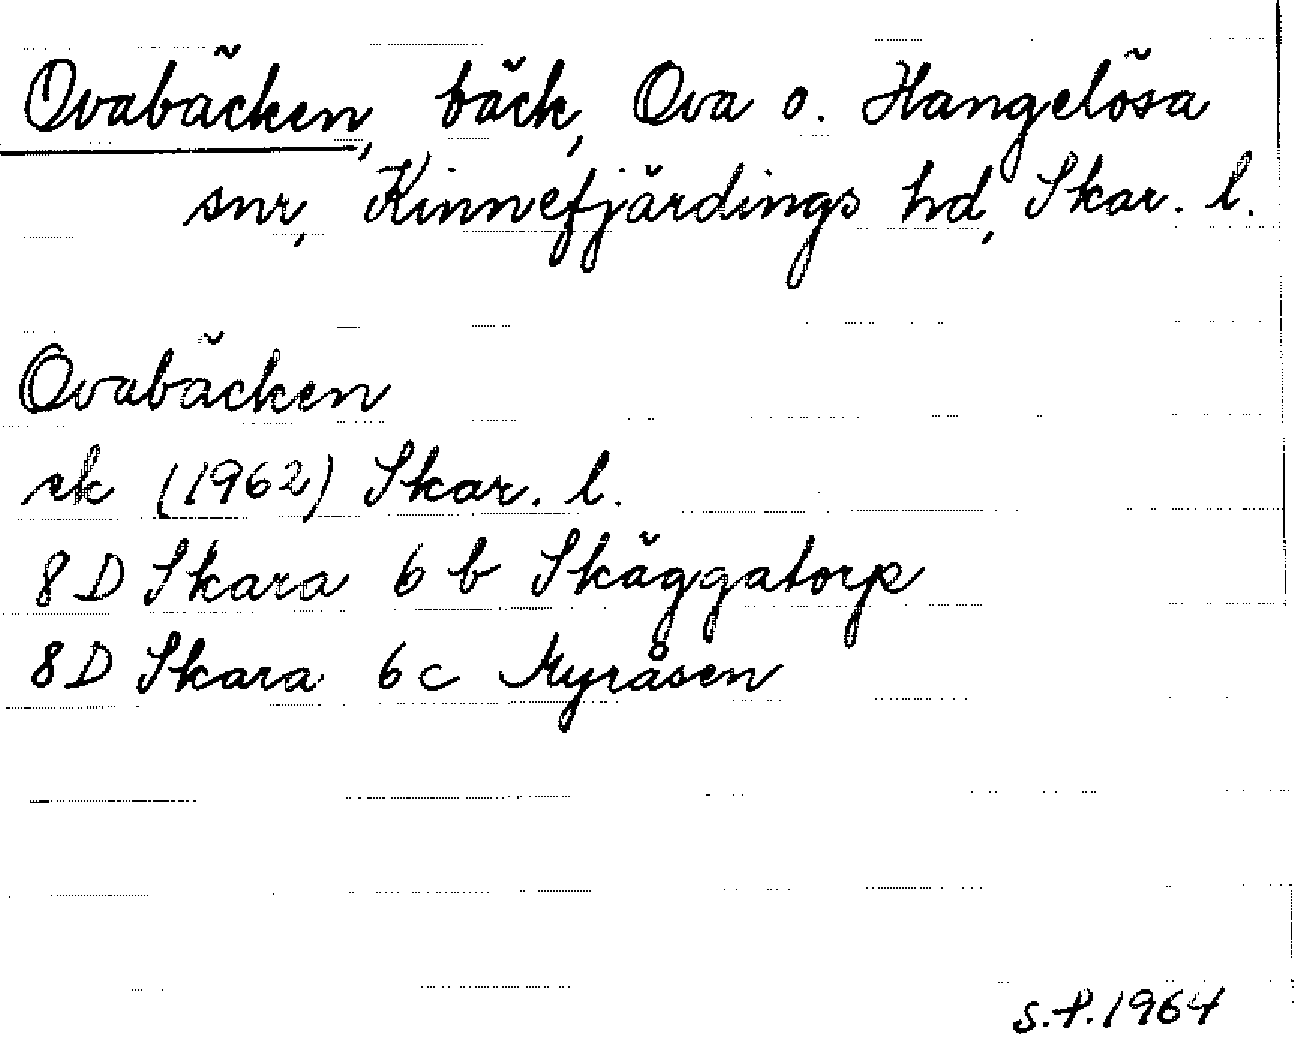 Ovabäcken, bäck, Ova o. Hangelösa
snr, Kinnefjärdings hd, Skar. l.
Ovabäcken
ek (1962) Skar. l.
8 D Skara 6 b Skäggatorp
8 D Skara 6 c Myråsen
S.P. 1964